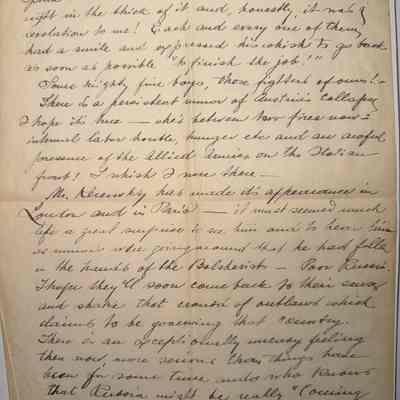 right in the thick of it and, honestly, it was a
revelation to me! Each and every one of them
had a smile and expressed his whish to go back
as soon as possible "to finish the job!"
Some mighty fine boys, those fighters of ours!
There is a persistent rumor of Austria's collapse
I hope its true — she's between two fires now:
internal labor trouble, hunger etc and an awful
presence of the Allied Armies on the Italian
front! I whish I were there —
Mr. Kerensky has made its appearance in
London and in Paris — it must seemed much
like a great surprise to see him and to hear him
as rumor were going around that he had fallen
in the hands of the Bolshevist — Poor Russia.
I hope they'll soon come back to their senses
and shake that crowd of outlaws which
claims to be governing that country.
There is an exceptionally uneasy feeling
then now, more serious than things have
been for some time and who knows
that Russia might be really "Coming